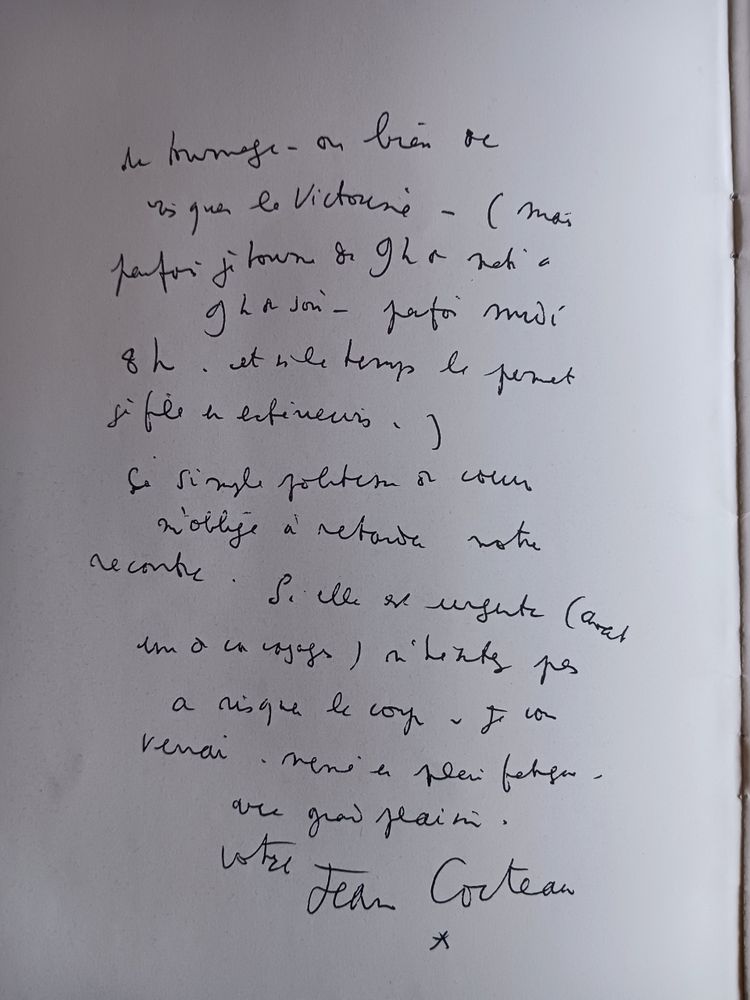 de tournage - ou bien de
risquer la Victorine - (mais
parfois je tourne de 9 h du matin à
9 h du soir - parfois midi
8 h. et si le temps le permet
je file en extérieurs.)
La simple politesse du cœur
m'oblige à retarder notre
rencontre. Si elle est urgente (avant
un de vos voyages) n'hésitez pas
à risquer le coup. Je vous
verrai. même en pleine fatigue -
avec grand plaisir.
votre Jean Cocteau
*